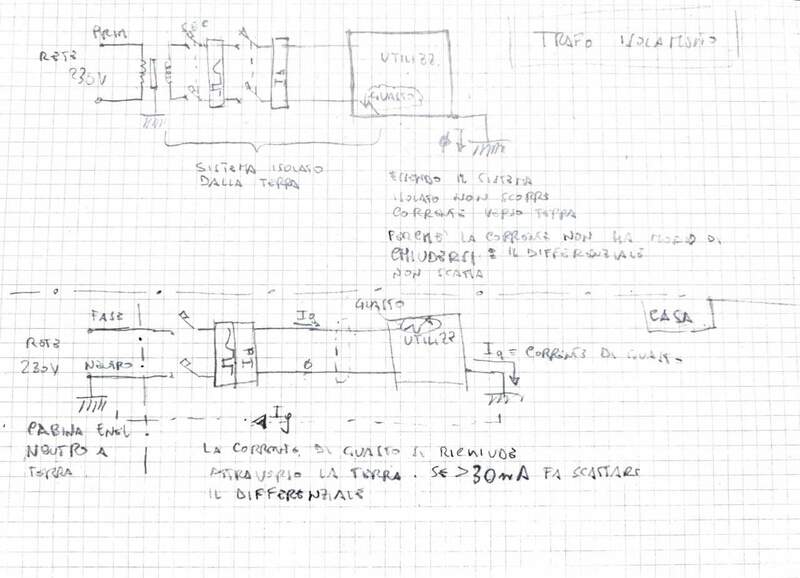 TRAFO ISOLAMENTO
PRIM
SEC
RETE
230V
Id
UTILIZZ.
GUASTO
SISTEMA ISOLATO
DALLA TERRA
Ø
ESSENDO IL SISTEMA
ISOLATO NON SCORRE
CORRENTE VERSO TERRA
PERCHÈ LA CORRENTE NON HA MODO DI
CHIUDERSI E IL DIFFERENZIALE
NON SCATTA
GUASTO
CASA
FASE
Ig
RETE
230V
NEUTRO
Id
Ø
UTILIZZ
Ig = CORRENTE DI GUASTO
Ig
CABINA ENEL
NEUTRO A
TERRA
LA CORRENTE DI GUASTO SI RICHIUDE
ATTRAVERSO LA TERRA. SE >30mA FA SCATTARE
IL DIFFERENZIALE